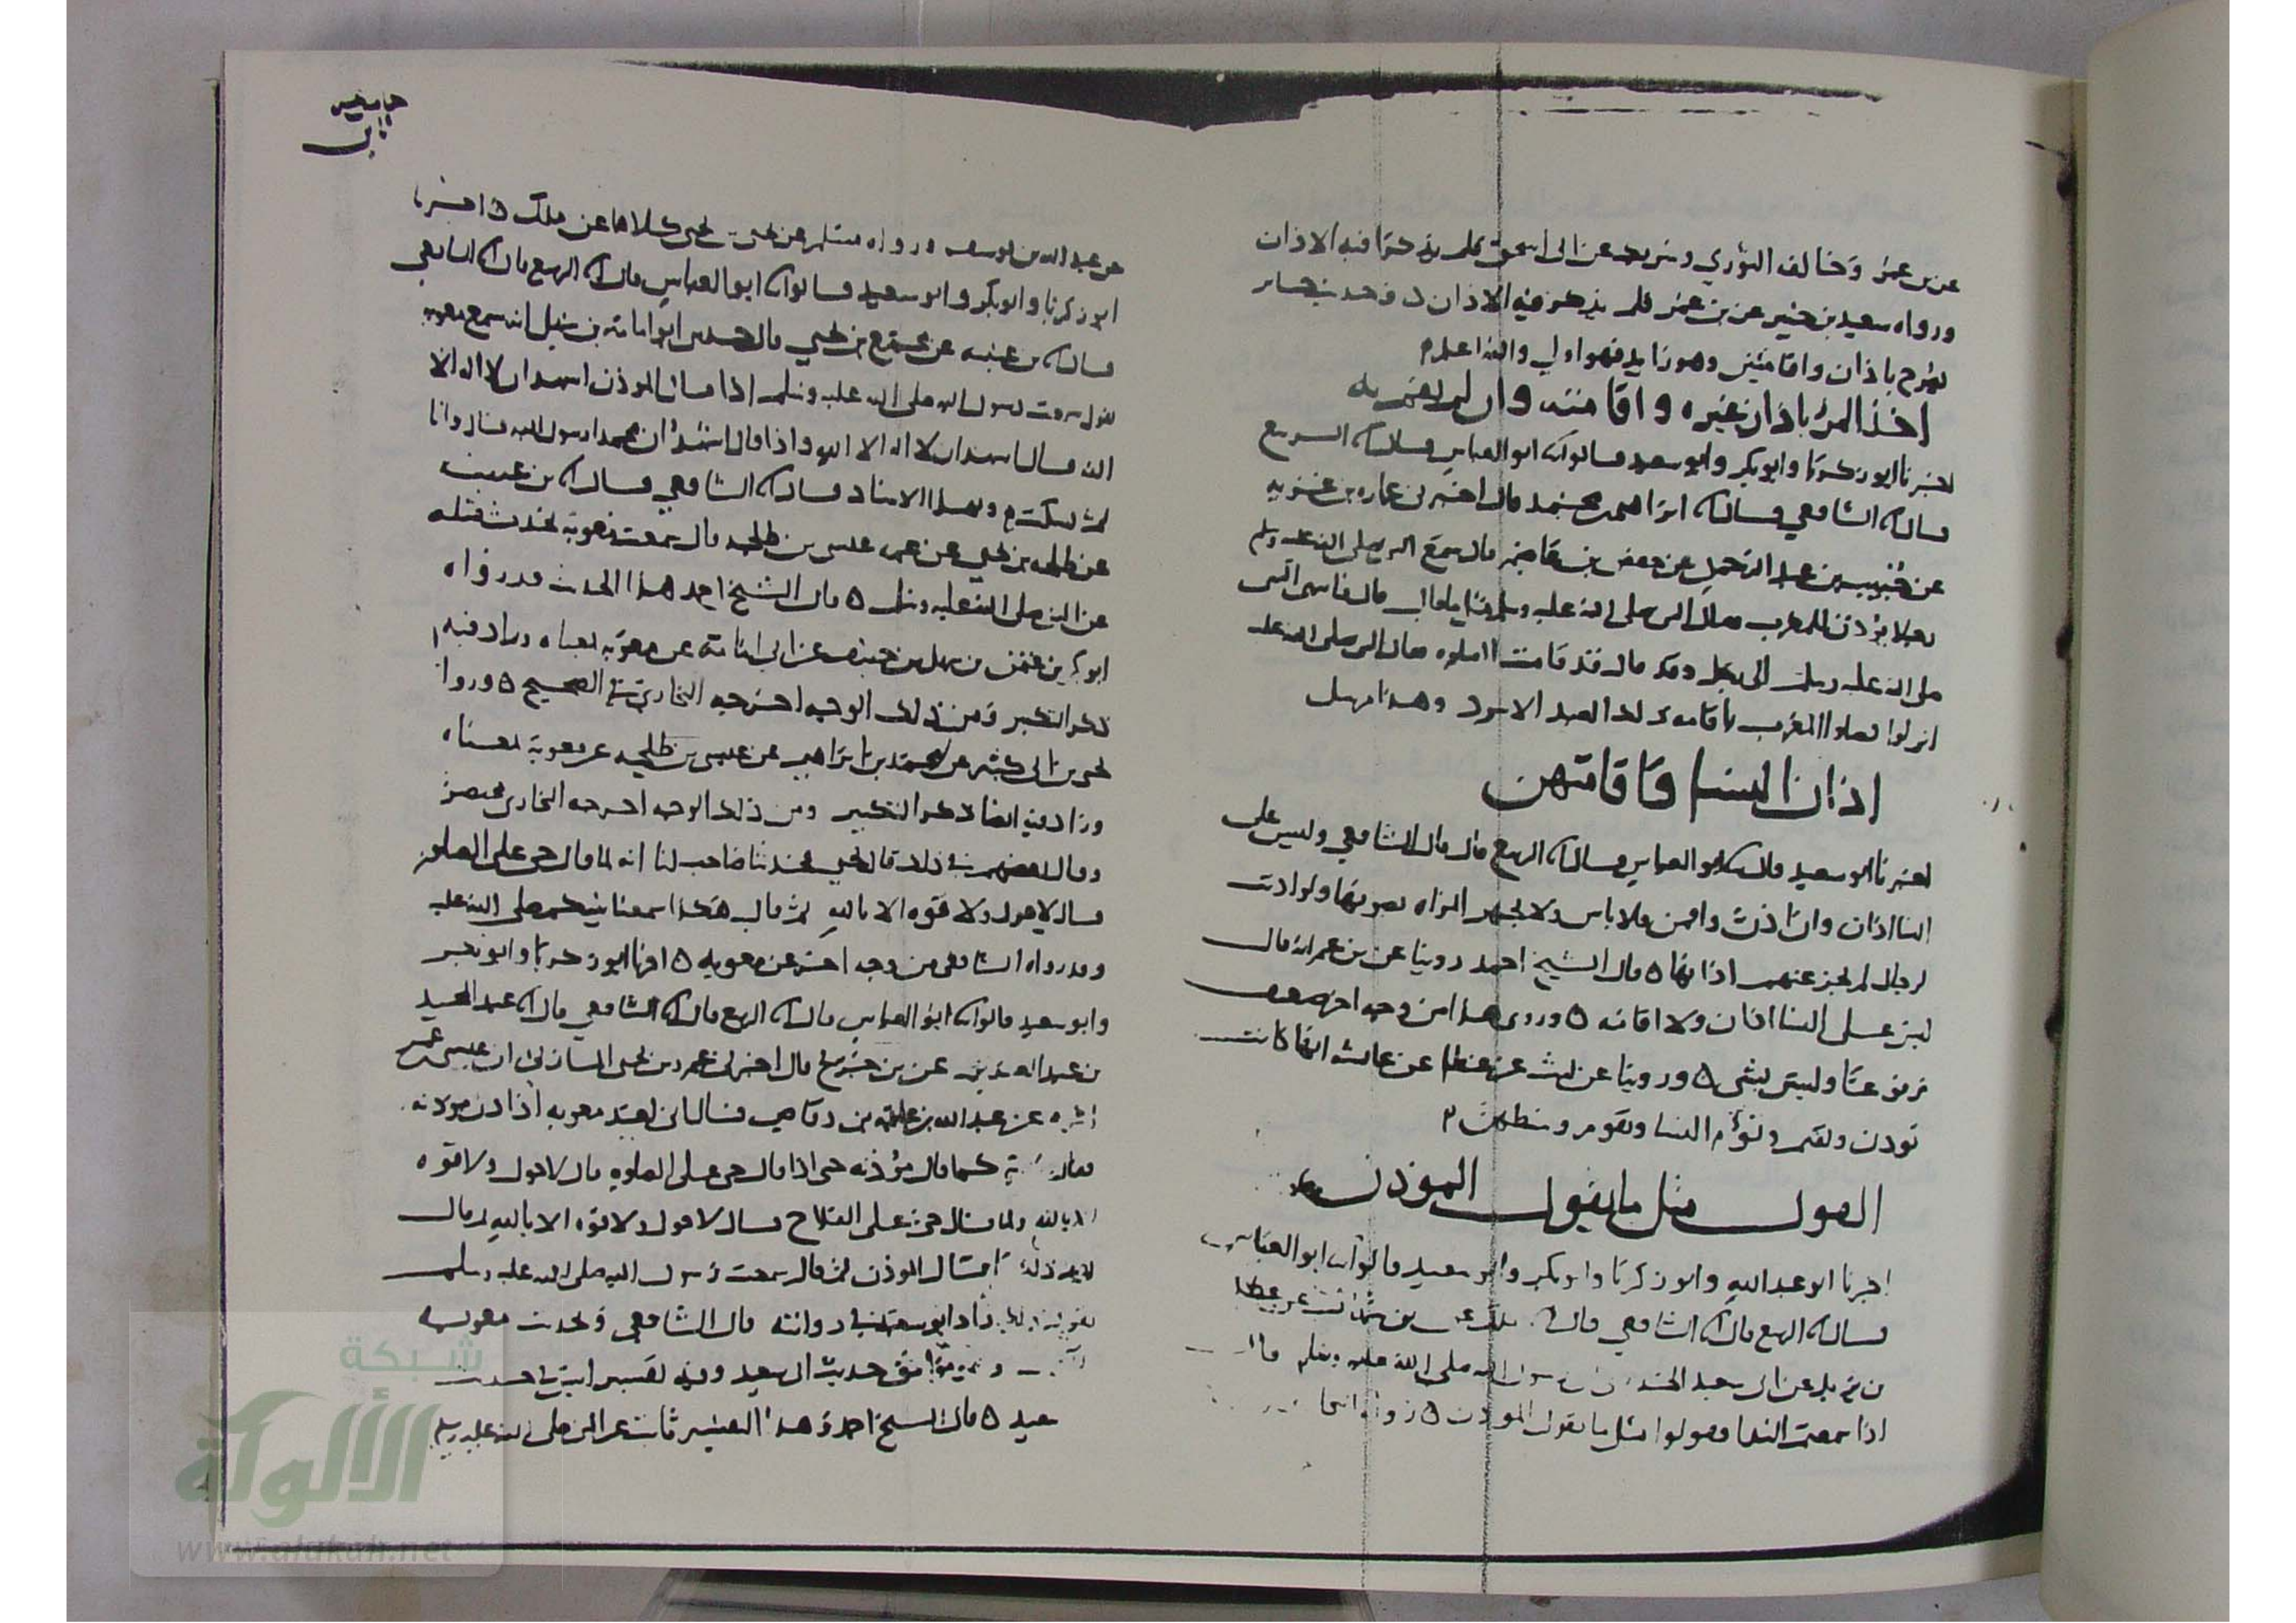 عن بن عمر وخالف الثوري وشريك عن ابي اسحق فلم يذكرا فيه الاذان
ورواه سعيد بن جبير عن بن عمر فلم يذكر فيه الاذان وحديث جابر
مصرح باذان واقامتين وهو زايد فهو اولى والله اعلم
اخذ المرء باذان غيره واقامته وان لم يقم به
اخبرنا ابو زكريا وابو بكر وابو سعيد قالوا ثنا ابو العباس قال انا الربيع
قال انا الشافعي قال انا ابراهيم بن محمد قال اخبرني عماره بن غزيه
عن خبيب بن عبد الرحمن عن حفص بن عاصم قال سمع النبي صلى الله عليه وسلم
رجلا يؤذن للمغرب فقال النبي صلى الله عليه وسلم مثل ما قال قال فانتهى النبي
صلى الله عليه وسلم الى رجل وقد قال قد قامت الصلوه فقال النبي صلى الله عليه
انزلوا فصلوا المغرب باقامة ذلك العبد الاسود وهذا مرسل
اذان النسا واقامتهن
اخبرنا ابو سعيد قال ثنا ابو العباس قال انا الربيع قال قال الشافعي وليس على
النسا اذان وان اذن واقمن فلا باس ولا تجهر المراه بصوتها ولو اذنت
لرجال لم يجز عنهم اذانها ٥ قال الشيخ احمد روينا عن بن عمر انه قال
ليس على النسا اذان ولا اقامه ٥ وروي هذا من وجه اخر ضعيف
مرفوعا وليس بشى ٥ وروينا عن ليث عن عطا عن عائشه انها كانت
تؤذن وتقيم وتؤم النسا وتقوم وسطهن
القول مثل ما يقول الموذن
اخبرنا ابو عبد الله وابو زكريا وابو بكر وابو سعيد قالوا ثنا ابو العباس
قال انا الربيع قال انا الشافعي قال انا ملك عن بن شهاب عن عطا
بن يزيد عن ابي سعيد الخدري ان رسول الله صلى الله عليه وسلم قال
اذا سمعتم الندا فقولوا مثل ما يقول الموذن ٥ رواه البخاري
عن عبد الله بن يوسف ورواه مسلم عن يحيى بن يحيى كلاهما عن ملك ٥ اخبرنا
ابو زكريا وابو بكر وابو سعيد قالوا ثنا ابو العباس قال انا الربيع قال انا الشافعي
قال انا بن عيينه عن مجمع بن يحيى قال حدثني ابو امامة بن سهل انه سمع معويه
يقول سمعت رسول الله صلى الله عليه وسلم اذا قال الموذن اشهد ان لا اله الا
الله قال اشهد ان لا اله الا الله واذا قال اشهد ان محمدا رسول الله قال وانا
ثم سكت وبهذا الاسناد قال انا الشافعي قال انا بن عيينه
عن طلحه بن يحيى عن عمه عيسى بن طلحه قال سمعت معوية يحدث مثله
عن النبي صلى الله عليه وسلم ٥ قال الشيخ احمد هذا الحديث قد رواه
ابو بكر بن عثمن بن سهل بن حنيف عن ابي امامة عن معوية بمعناه وزاد فيه
ذكر التكبير ومن ذلك الوجه اخرجه البخاري في الصحيح ٥ وروا
يحيى بن ابي كثير عن محمد بن ابراهيم عن عيسى بن طلحه عن معوية بمعناه
وزاد فيه ايضا ذكر التكبير ومن ذلك الوجه اخرجه البخاري مختصرا
وقال بعضهم في ذلك قال يحيى فحدثنا صاحب لنا انه لما قال حي على الصلوه
قال لا حول ولا قوه الا بالله ثم قال هكذا سمعنا نبيكم صلى الله عليه
وقد رواه الشافعي من وجه اخر عن معويه ٥ اخبرنا ابو زكريا وابو بكر
وابو سعيد قالوا ثنا ابو العباس قال انا الربيع قال انا الشافعي قال انا عبد المجيد
بن عبد العزيز عن بن جريج قال اخبرني عمرو بن يحيى المازني ان عيسى بن عمر
اخبره عن عبد الله بن علقمه بن وقاص قال اني لعند معويه اذ اذن موذنه
فقال معوية كما قال مؤذنه حتى اذا قال حي على الصلوه قال لا حول ولا قوه
الا بالله ولما قال حي على الفلاح قال لا حول ولا قوه الا بالله ثم قال
بعد ذلك ما قال الموذن ثم قال سمعت رسول الله صلى الله عليه وسلم
يقول ذلك زاد ابو سعيد في روايته قال الشافعي وحديث معويه
موافق حديث ابي سعيد وفيه تفسير ليس في حديث
سعيد ٥ قال الشيخ احمد وهذا التفسير ثابت عن النبي صلى الله عليه وسلم
شبكة
الألوكة
www.alukah.net